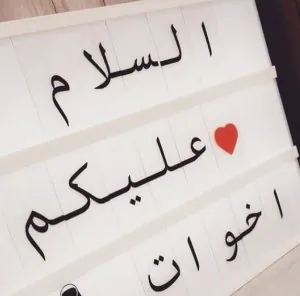 السلام
عليكم
اخوات